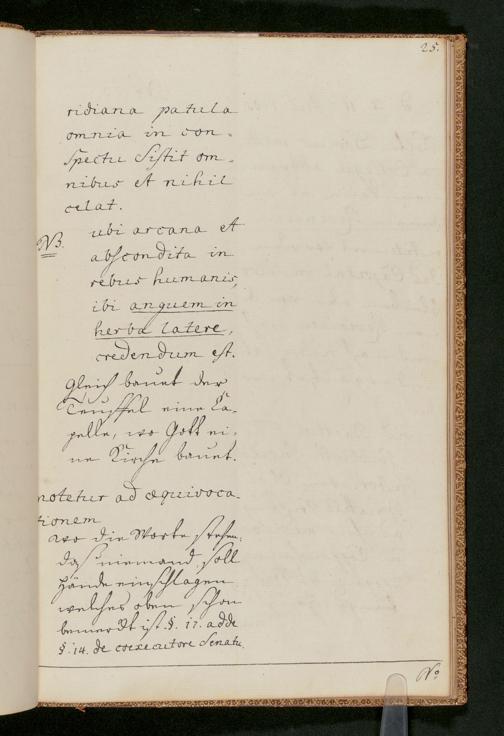 25.
ridiana patula
omnia in con-
spectu sistit om-
nibus et nihil
celat.
NB.
ubi arcana et
abscondita in
rebus humanis,
ibi anguem in
herba latere,
credendum est.
gleich bauet der
Teuffel eine Ca-
pelle, wo Gott ei-
ne Kirche bauet.
notetur ad æquivoca-
tionem
wo die Worte stehen:
daß niemand soll
Hände einschlagen
welches oben schon
bemerckt ist §. 17. adde
§. 14. de coexecutore Senatu.
No